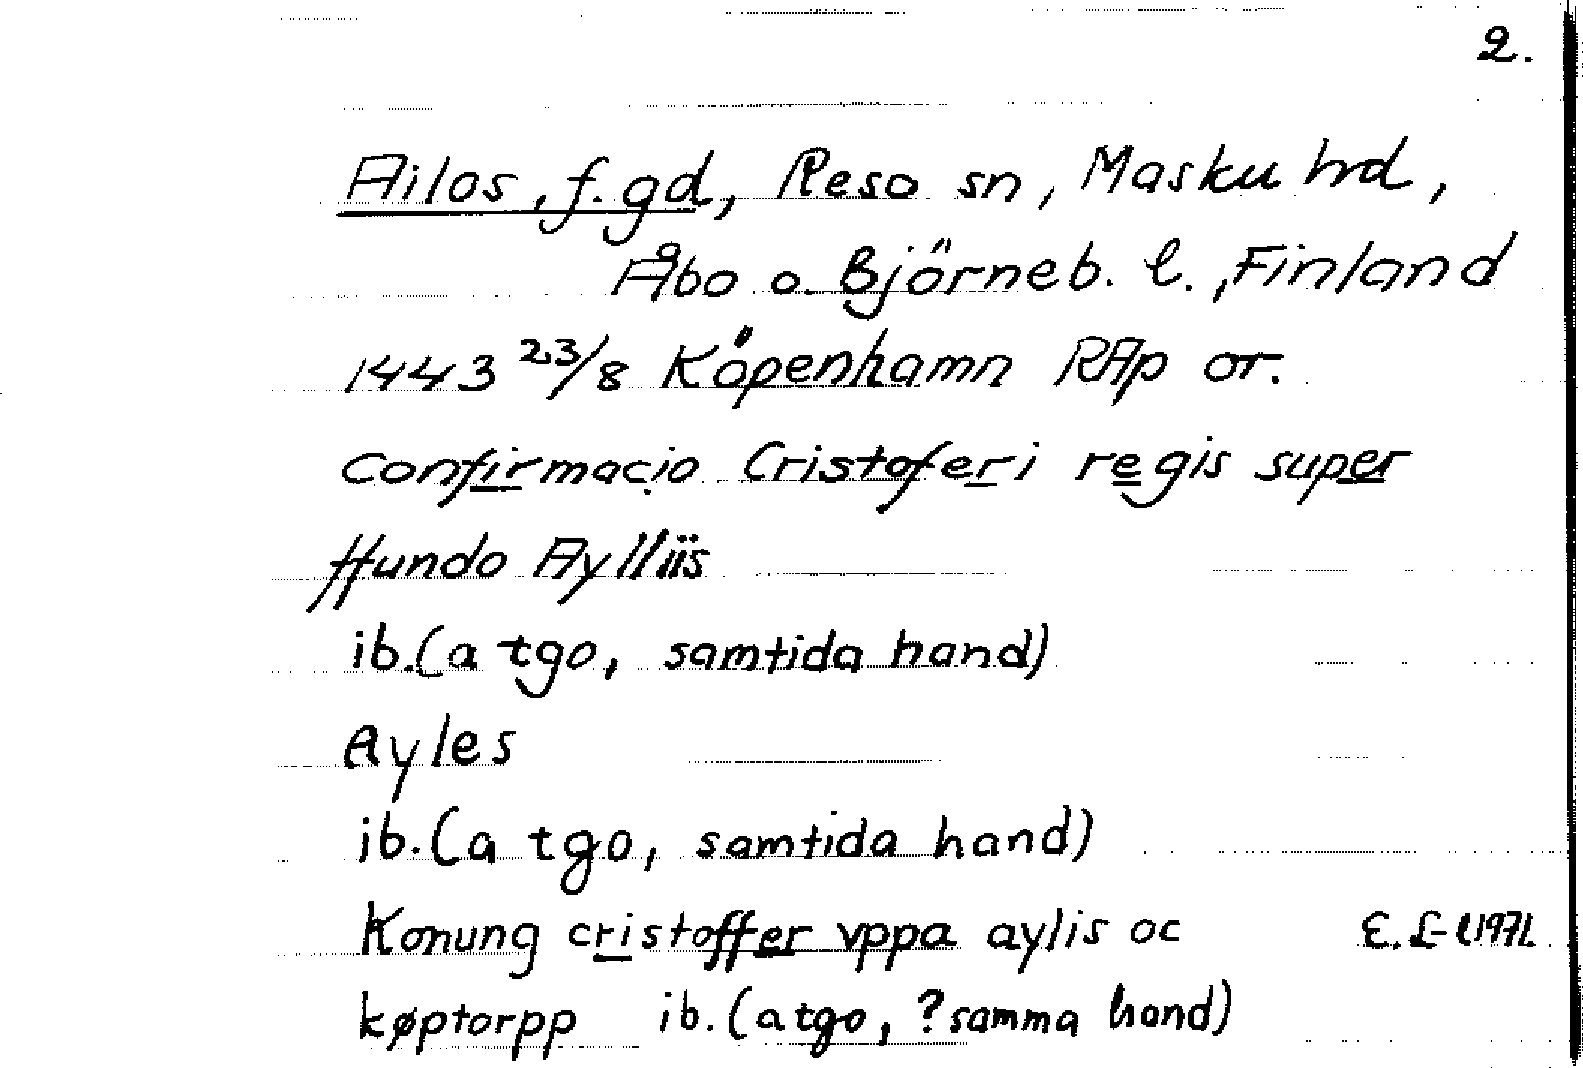 2.
Ailos, f. gd, Reso sn, Masku hd,
Åbo o. Björneb. l., Finland
1443 23/8 Köpenhamn RAp or.
Confirmacio Cristoferi regis super
ffundo Aylliis
ib. (a tgo, samtida hand)
Ayles
ib. (a tgo, samtida hand)
Konung cristoffer vppa aylis oc
køptorpp ib. (a tgo, ? samma hand)